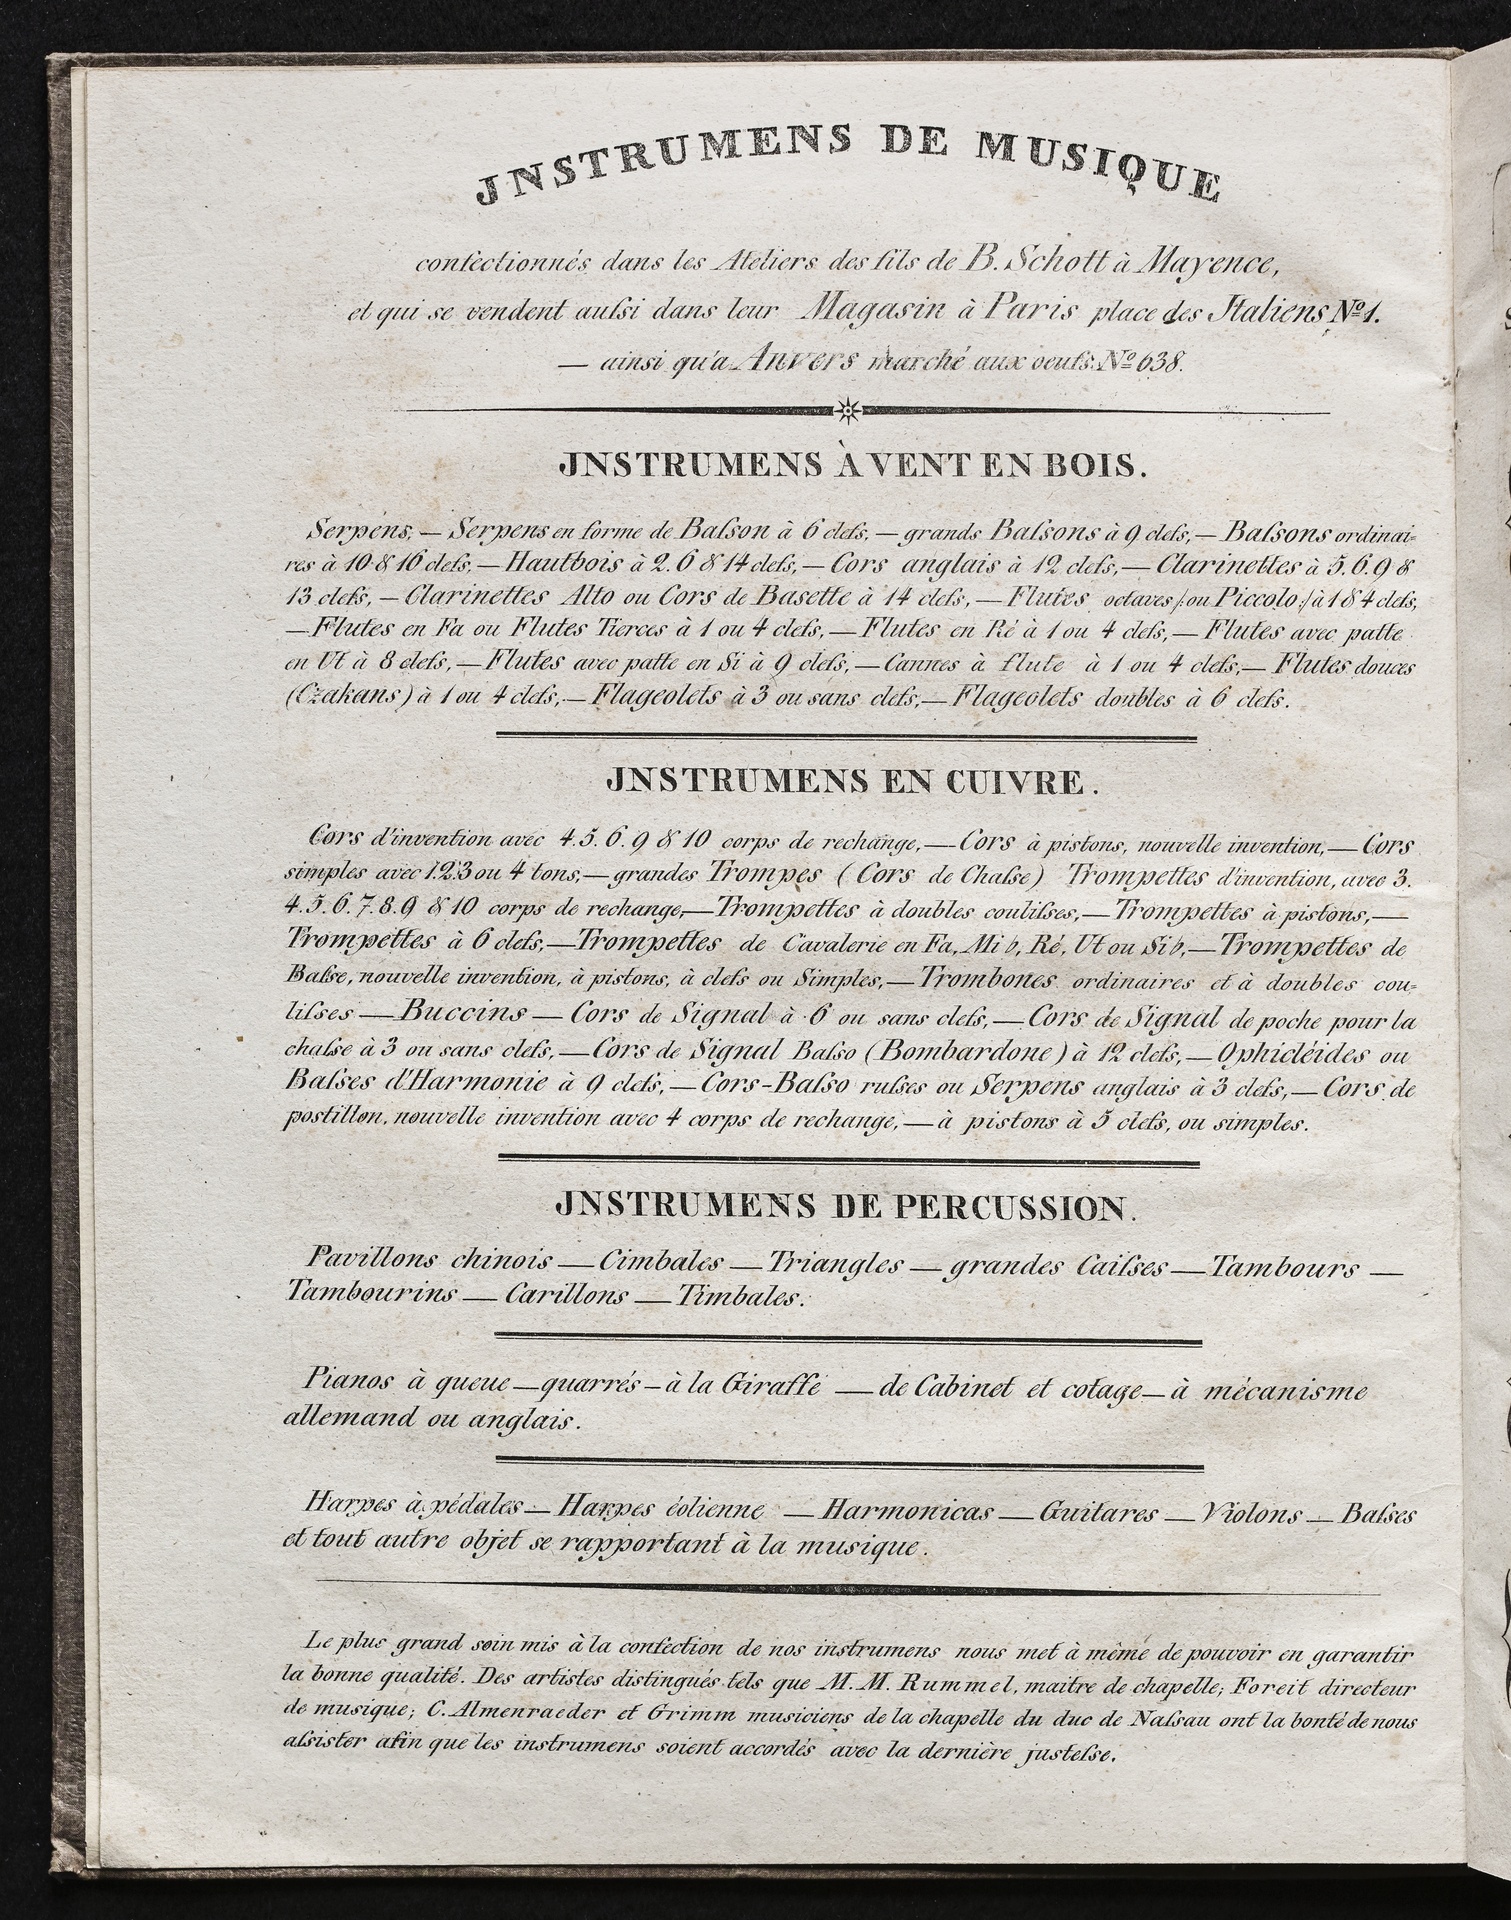 JNSTRUMENS DE MUSIQUE
confectionnés dans les Ateliers des fils de B. Schott à Mayence,
et qui se vendent auſsi dans leur Magasin à Paris place des Jtaliens Nº 1.
— ainsi qu'a Anvers marché aux oeufs Nº 638.
JNSTRUMENS À VENT EN BOIS.
Serpens, — Serpens en forme de Baſson à 6 clefs, — grands Baſsons à 9 clefs, — Baſsons ordinai=
res à 10 & 16 clefs, — Hautbois à 2. 6 & 14 clefs, — Cors anglais à 12 clefs, — Clarinettes à 5. 6. 9 &
13 clefs, — Clarinettes Alto ou Cors de Basette à 14 clefs, — Flutes octaves /: ou Piccolo :/ à 1 & 4 clefs,
— Flutes en Fa ou Flutes Tierces à 1 ou 4 clefs, — Flutes en Ré à 1 ou 4 clefs, — Flutes avec patte
en Ut à 8 clefs, — Flutes avec patte en Si à 9 clefs, — Cannes à flute à 1 ou 4 clefs, — Flutes douces
(Czakans) à 1 ou 4 clefs, — Flageolets à 3 ou sans clefs, — Flageolets doubles à 6 clefs.
JNSTRUMENS EN CUIVRE.
Cors d'invention avec 4. 5. 6. 9 & 10 corps de rechange, — Cors à pistons, nouvelle invention, — Cors
simples avec 1. 2. 3 ou 4 tons, — grandes Trompes (Cors de Chaſse) Trompettes d'invention, avec 3.
4. 5. 6. 7. 8. 9 & 10 corps de rechange, — Trompettes à doubles couliſses, — Trompettes à pistons, —
Trompettes à 6 clefs, — Trompettes de Cavalerie en Fa, Mi♭, Ré, Ut ou Si♭, — Trompettes de
Baſse, nouvelle invention, à pistons, à clefs ou Simples, — Trombones ordinaires et à doubles cou=
liſses — Buccins — Cors de Signal à 6 ou sans clefs, — Cors de Signal de poche pour la
chaſse à 3 ou sans clefs, — Cors de Signal Baſso (Bombardone) à 12 clefs, — Ophicléides ou
Baſses d'Harmonie à 9 clefs, — Cors-Baſso ruſses ou Serpens anglais à 3 clefs, — Cors de
postillon, nouvelle invention avec 4 corps de rechange, — à pistons à 5 clefs, ou simples.
JNSTRUMENS DE PERCUSSION.
Pavillons chinois — Cimbales — Triangles — grandes Caiſses — Tambours —
Tambourins — Carillons — Timbales.
Pianos à queue — quarrés — à la Giraffe — de Cabinet et cotage — à mécanisme
allemand ou anglais.
Harpes à pédales — Harpes éolienne — Harmonicas — Guitares — Violons — Baſses
et tout autre objet se rapportant à la musique.
Le plus grand soin mis à la confection de nos instrumens nous met à même de pouvoir en garantir
la bonne qualité. Des artistes distingués tels que M. M. Rummel, maitre de chapelle; Foreit directeur
de musique; C. Almenraeder et Grimm musiciens de la chapelle du duc de Naſsau ont la bonté de nous
aſsister afin que les instrumens soient accordés avec la dernière justeſse.